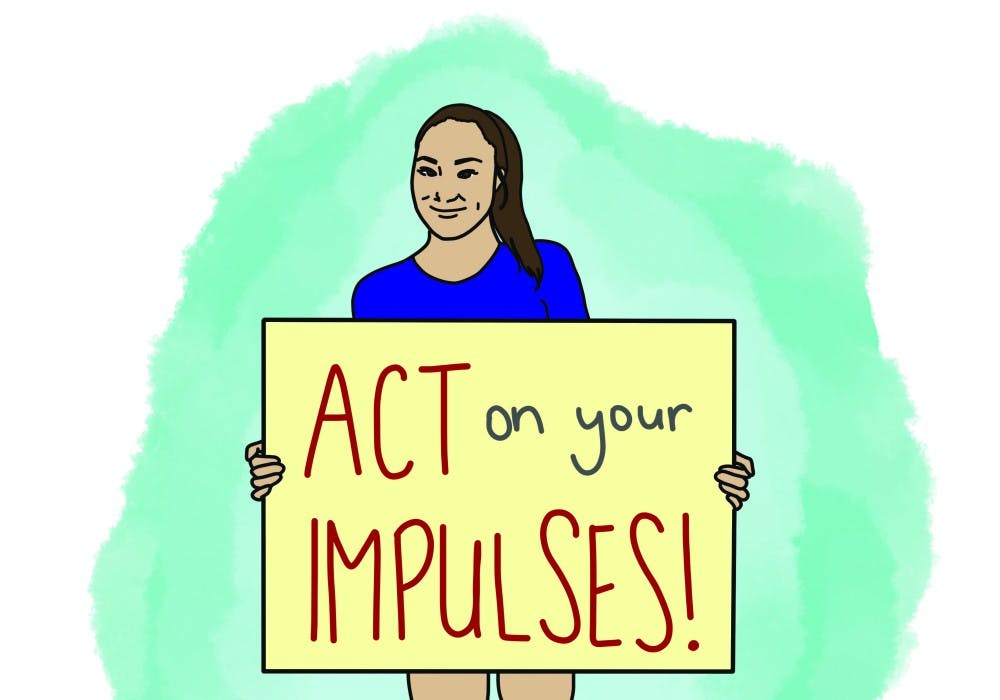 ACT on your
IMPULSES!